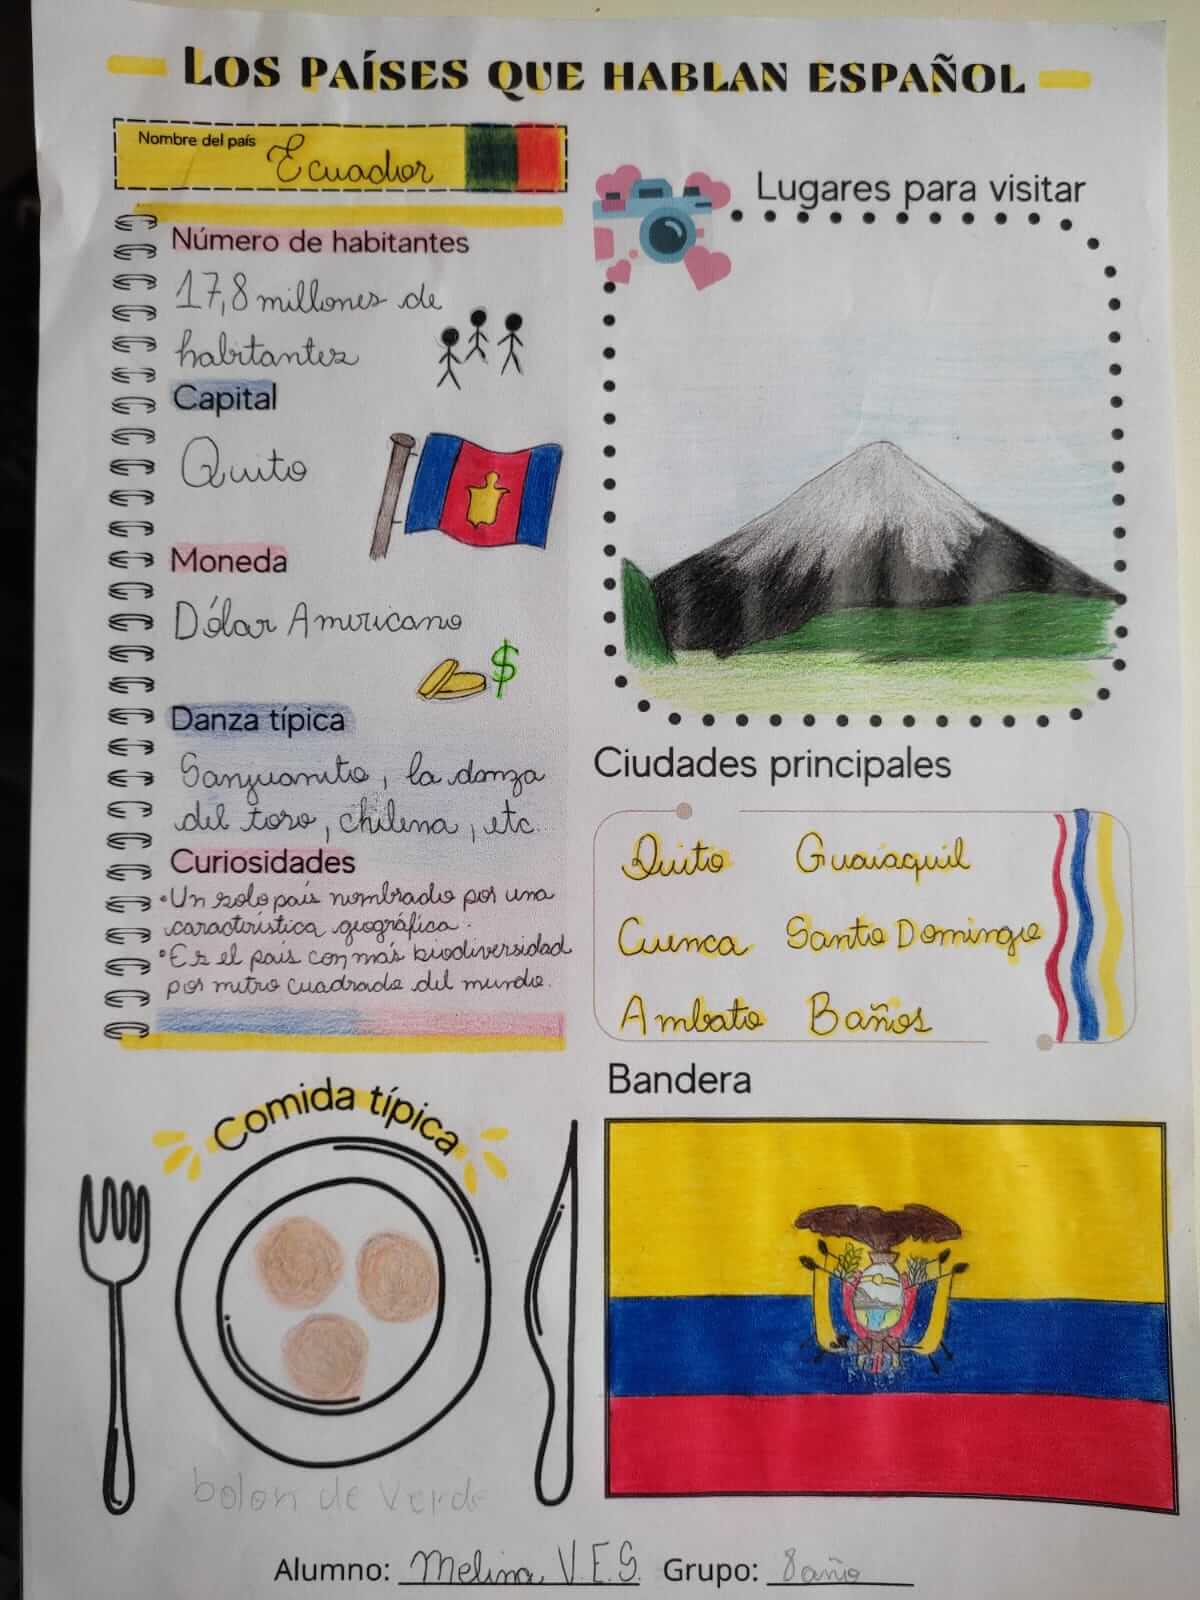 LOS PAÍSES QUE HABLAN ESPAÑOL
Nombre del país Ecuador
Número de habitantes
17,8 millones de
habitantes
Capital
Quito
Moneda
Dólar Americano
$
Danza típica
Sanjuanito, la danza
del toro, chilena, etc.
Curiosidades
•Un solo país nombrado por una
característica geográfica.
•Es el país con más biodiversidad
por metro cuadrado del mundo.
Lugares para visitar
Ciudades principales
Quito Guaiaquil
Cuenca Santo Domingo
Ambato Baños
Comida típica
bolon de verde
Bandera
Alumno: Melina V.E.S. Grupo: 8 año